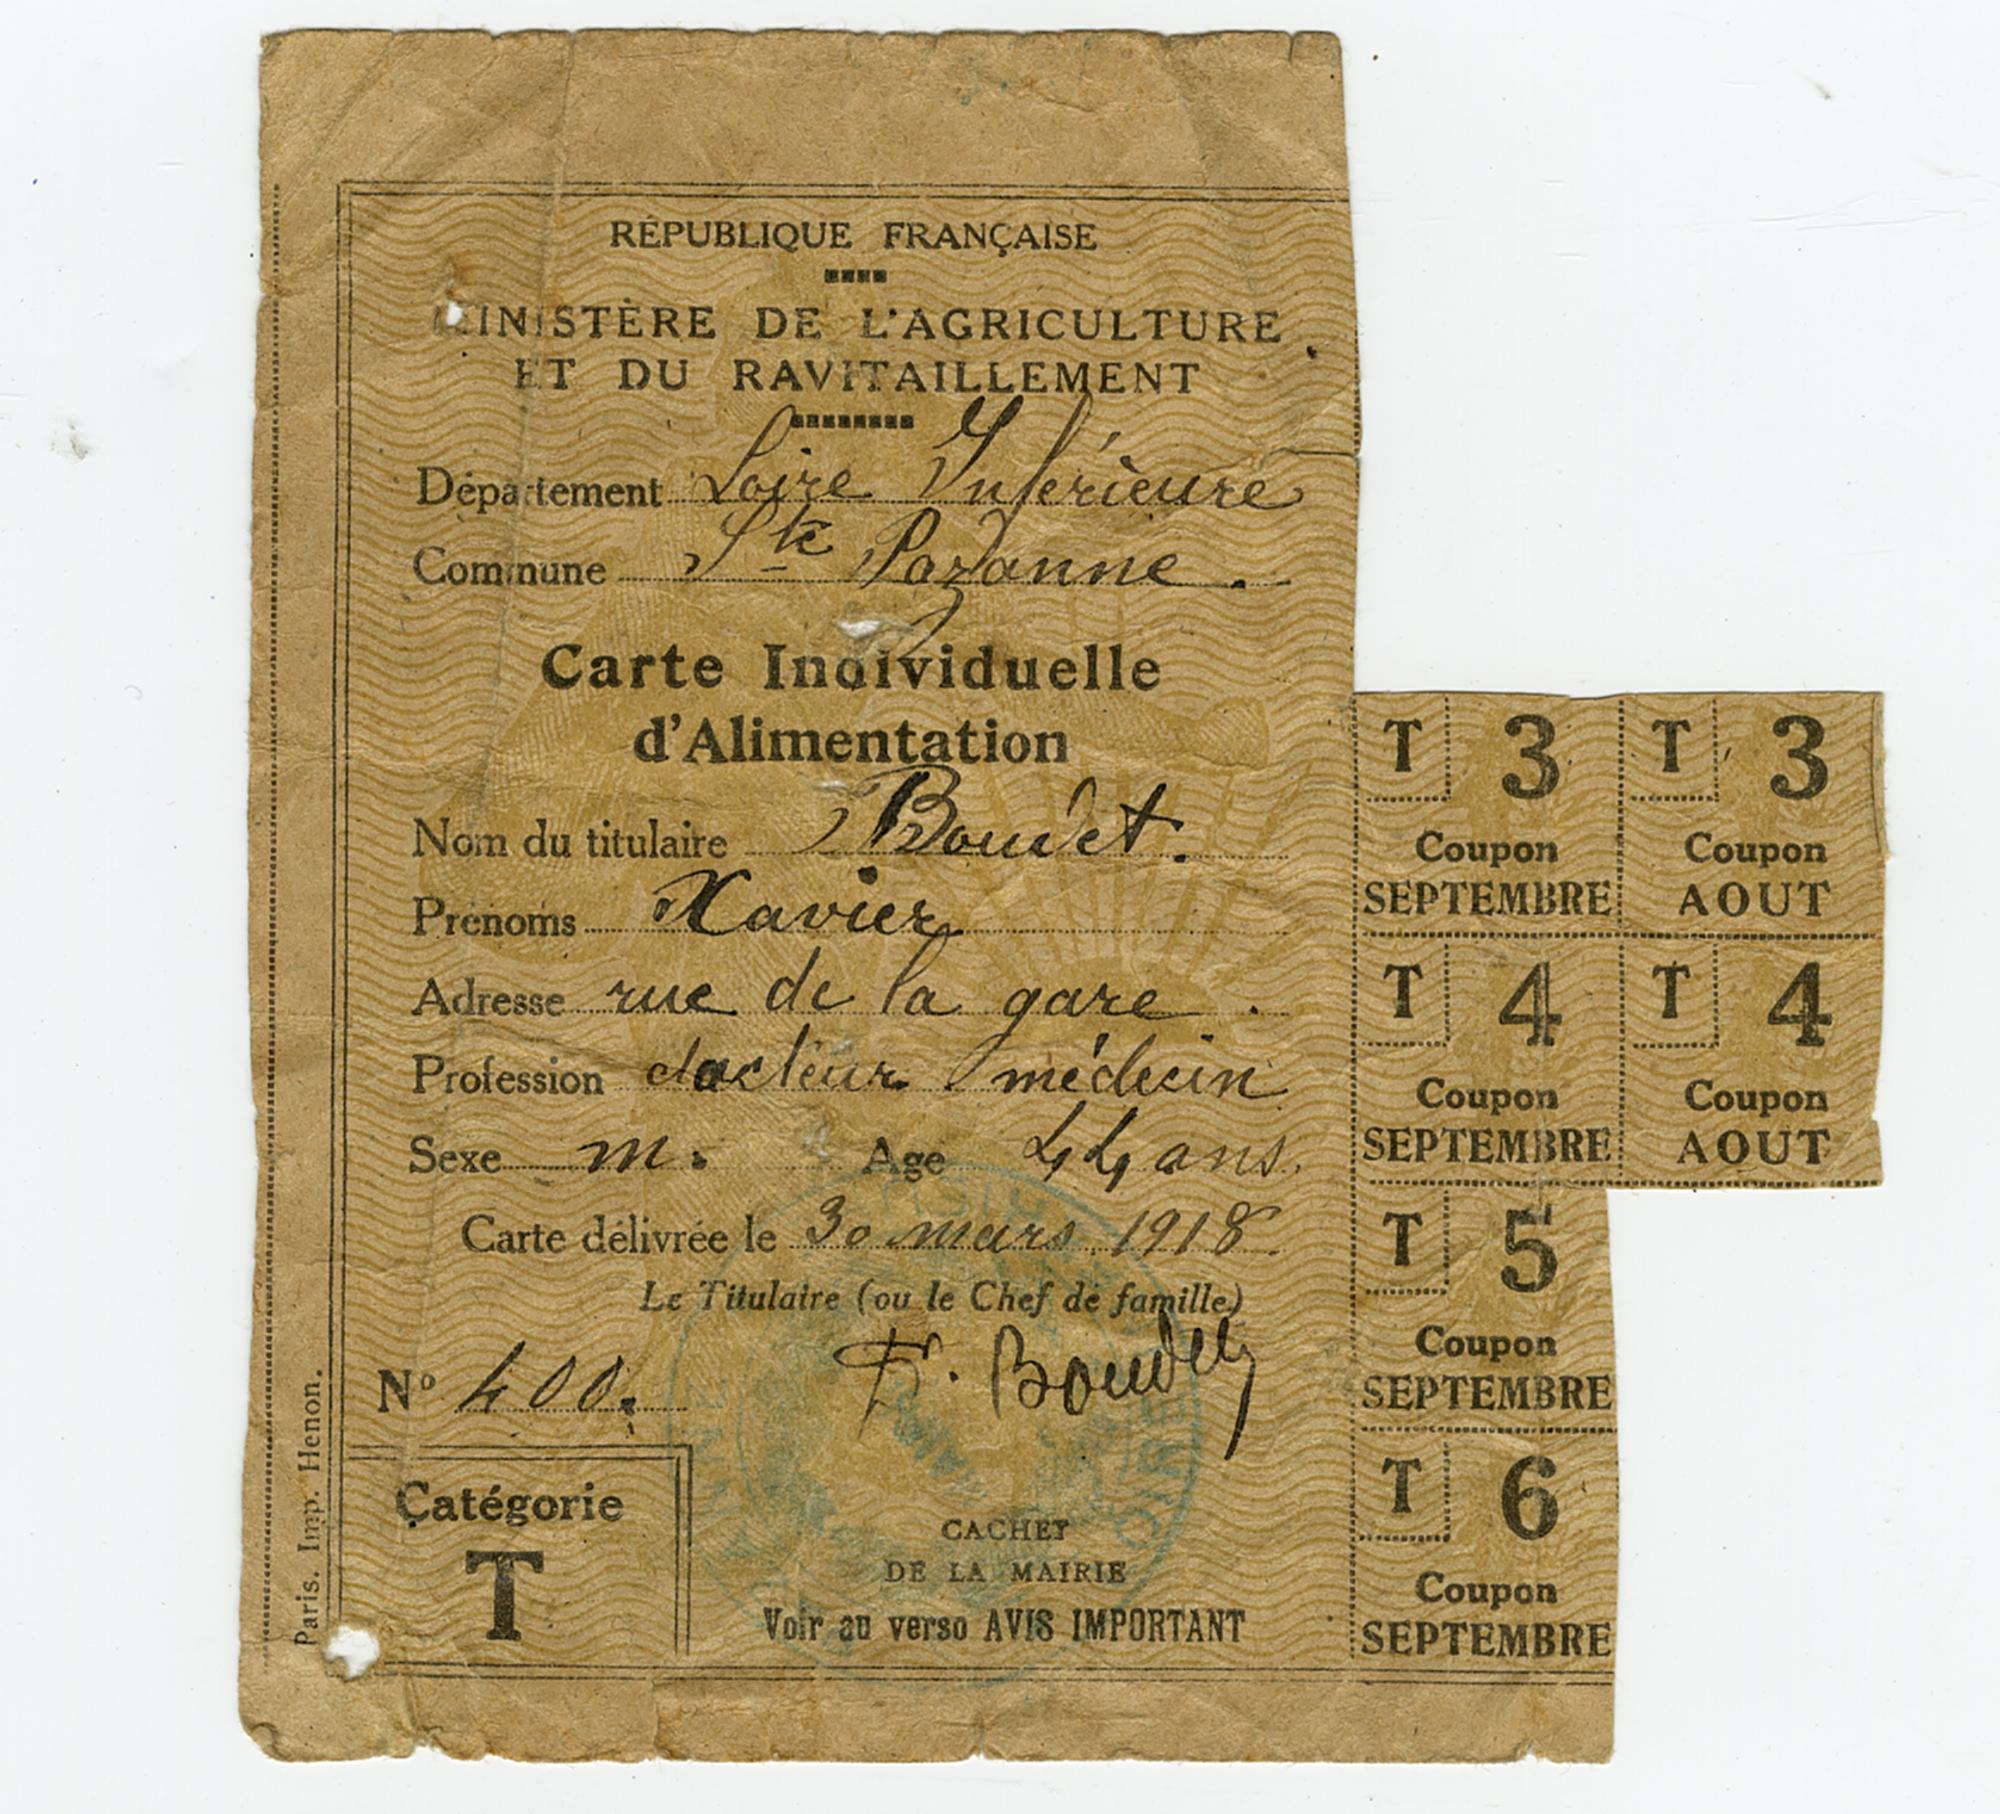 RÉPUBLIQUE FRANÇAISE
MINISTÈRE DE L'AGRICULTURE
ET DU RAVITAILLEMENT
Département Loire Inférieure
Commune Ste Pazanne.
Carte Individuelle
d'Alimentation
Nom du titulaire Boudet.
Prénoms Xavier
Adresse rue de la gare.
Profession docteur médecin
Sexe m. Age 44 ans.
Carte délivrée le 30 mars 1918.
Le Titulaire (ou le Chef de famille)
Boudet
No 400.
Catégorie
T
CACHET
DE LA MAIRIE
Voir au verso AVIS IMPORTANT
Paris. Imp. Henon.
T 3
Coupon
SEPTEMBRE
T 3
Coupon
AOUT
T 4
Coupon
SEPTEMBRE
T 4
Coupon
AOUT
T 5
Coupon
SEPTEMBRE
T 6
Coupon
SEPTEMBRE